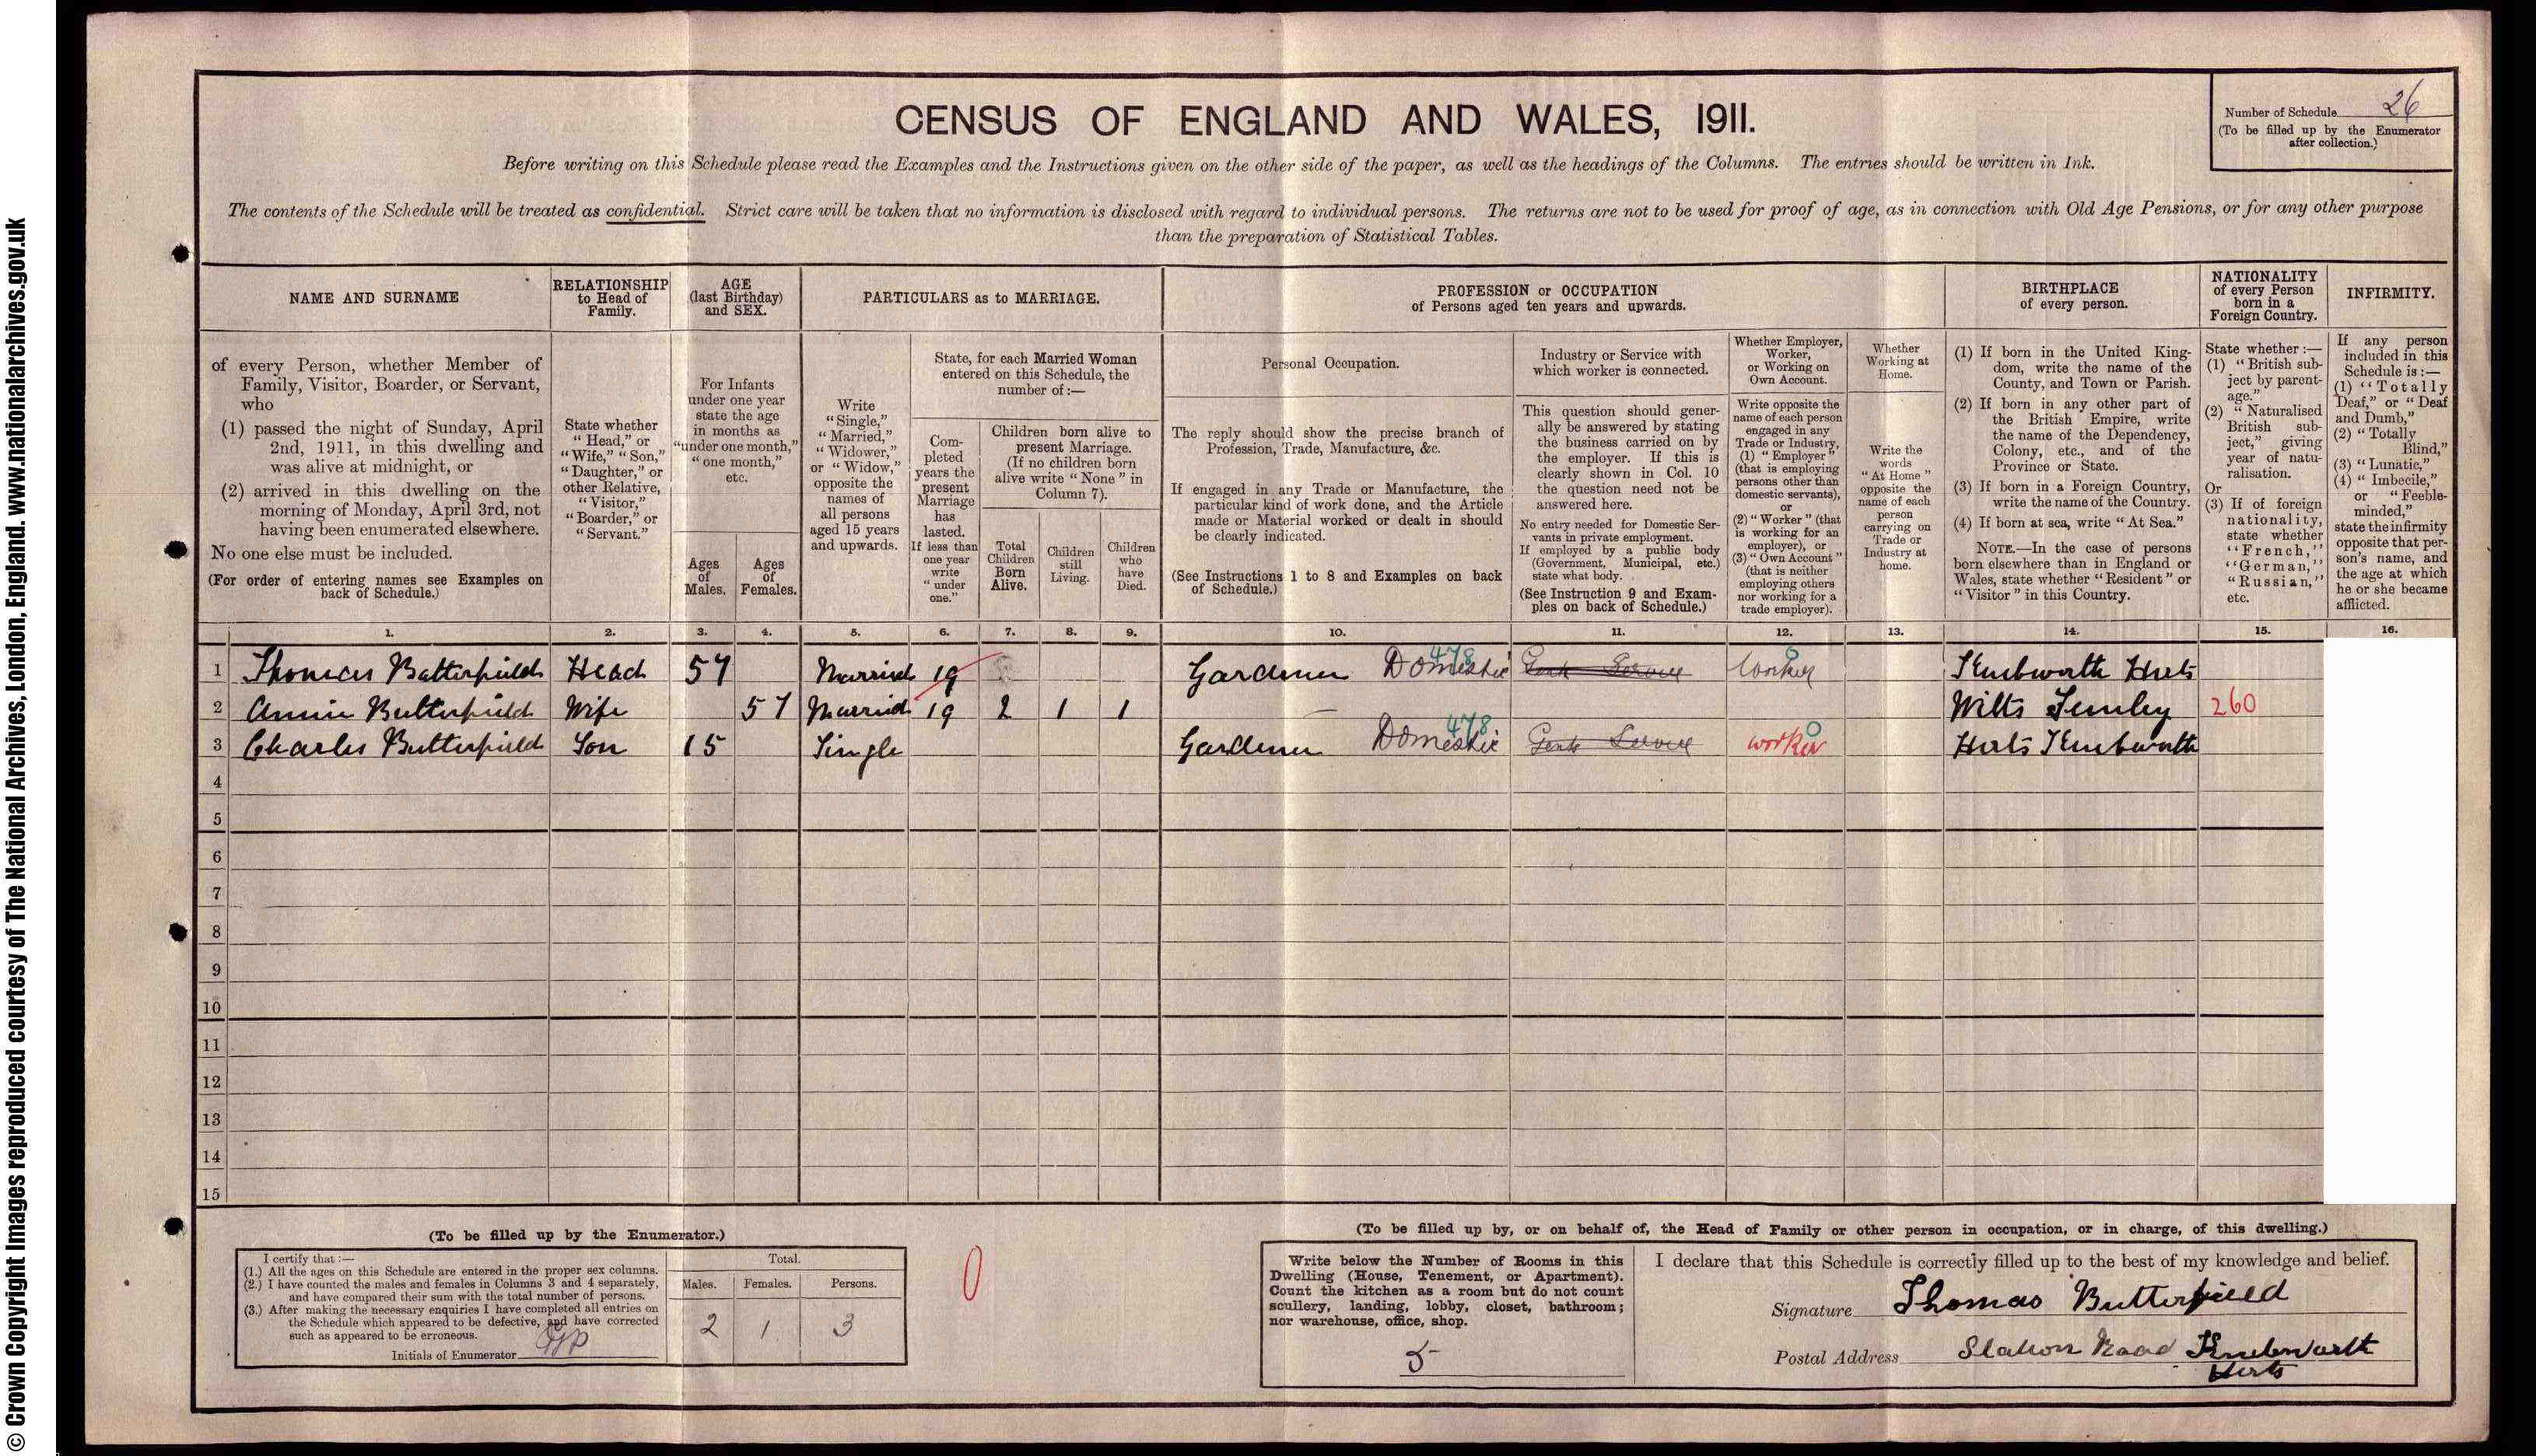 © Crown Copyright Images reproduced courtesy of The National Archives, London, England. www.nationalarchives.gov.uk
CENSUS OF ENGLAND AND WALES, 1911.
Number of Schedule 26
(To be filled up by the Enumerator
after collection.)
Before writing on this Schedule please read the Examples and the Instructions given on the other side of the paper, as well as the headings of the Columns. The entries should be written in Ink.
The contents of the Schedule will be treated as confidential. Strict care will be taken that no information is disclosed with regard to individual persons. The returns are not to be used for proof of age, as in connection with Old Age Pensions, or for any other purpose
than the preparation of Statistical Tables.
NAME AND SURNAME
of every Person, whether Member of
Family, Visitor, Boarder, or Servant,
who
(1) passed the night of Sunday, April
2nd, 1911, in this dwelling and
was alive at midnight, or
(2) arrived in this dwelling on the
morning of Monday, April 3rd, not
having been enumerated elsewhere.
No one else must be included.
(For order of entering names see Examples on
back of Schedule.)
RELATIONSHIP
to Head of
Family.
State whether
"Head," or
"Wife," "Son,"
"Daughter," or
other Relative,
"Visitor,"
"Boarder," or
"Servant."
AGE
(last Birthday)
and SEX.
For Infants
under one year
state the age
in months as
"under one month,"
"one month,"
etc.
Ages
of
Males.
Ages
of
Females.
PARTICULARS as to MARRIAGE.
Write
"Single,"
"Married,"
"Widower,"
or "Widow,"
opposite the
names of
all persons
aged 15 years
and upwards.
State, for each Married Woman
entered on this Schedule, the
number of :—
Com-
pleted
years the
present
Marriage
has
lasted.
If less than
one year
write
"under
one."
Children born alive to
present Marriage.
(If no children born
alive write "None" in
Column 7).
Total
Children
Born
Alive.
Children
still
Living.
Children
who
have
Died.
PROFESSION or OCCUPATION
of Persons aged ten years and upwards.
Personal Occupation.
The reply should show the precise branch of
Profession, Trade, Manufacture, &c.
If engaged in any Trade or Manufacture, the
particular kind of work done, and the Article
made or Material worked or dealt in should
be clearly indicated.
(See Instructions 1 to 8 and Examples on back
of Schedule.)
Industry or Service with
which worker is connected.
This question should gener-
ally be answered by stating
the business carried on by
the employer. If this is
clearly shown in Col. 10
the question need not be
answered here.
No entry needed for Domestic Ser-
vants in private employment.
If employed by a public body
(Government, Municipal, etc.)
state what body.
(See Instruction 9 and Exam-
ples on back of Schedule.)
Whether Employer,
Worker,
or Working on
Own Account.
Write opposite the
name of each person
engaged in any
Trade or Industry,
(1) "Employer"
(that is employing
persons other than
domestic servants),
or
(2) "Worker" (that
is working for an
employer), or
(3) "Own Account"
(that is neither
employing others
nor working for a
trade employer).
Whether
Working at
Home.
Write the
words
"At Home"
opposite the
name of each
person
carrying on
Trade or
Industry at
home.
BIRTHPLACE
of every person.
(1) If born in the United King-
dom, write the name of the
County, and Town or Parish.
(2) If born in any other part of
the British Empire, write
the name of the Dependency,
Colony, etc., and of the
Province or State.
(3) If born in a Foreign Country,
write the name of the Country.
(4) If born at sea, write "At Sea."
NOTE.—In the case of persons
born elsewhere than in England or
Wales, state whether "Resident" or
"Visitor" in this Country.
NATIONALITY
of every Person
born in a
Foreign Country.
State whether :—
(1) "British sub-
ject by parent-
age."
(2) "Naturalised
British sub-
ject," giving
year of natu-
ralisation.
Or
(3) If of foreign
nationality,
state whether
"French,"
"German,"
"Russian,"
etc.
INFIRMITY.
If any person
included in this
Schedule is :—
(1) "Totally
Deaf," or "Deaf
and Dumb,"
(2) "Totally
Blind,"
(3) "Lunatic,"
(4) "Imbecile,"
or "Feeble-
minded,"
state the infirmity
opposite that per-
son's name, and
the age at which
he or she became
afflicted.
1. 2. 3. 4. 5. 6. 7. 8. 9. 10. 11. 12. 13. 14. 15. 16.
1 Thomas Butterfield Head 57 Married 19 Gardener Domestic 478 Worker 0 Knebworth Herts
2 Annie Butterfield Wife 57 Married 19 2 1 1 — Wilts Semley 260
3 Charles Butterfield Son 15 Single Gardener Domestic 478 Gents Service worker 0 Herts Knebworth
4
5
6
7
8
9
10
11
12
13
14
15
(To be filled up by the Enumerator.)
I certify that :—
(1.) All the ages on this Schedule are entered in the proper sex columns.
(2.) I have counted the males and females in Columns 3 and 4 separately,
and have compared their sum with the total number of persons.
(3.) After making the necessary enquiries I have completed all entries on
the Schedule which appeared to be defective, and have corrected
such as appeared to be erroneous.
Initials of Enumerator
Total.
Males. Females. Persons.
2 1 3
0
(To be filled up by, or on behalf of, the Head of Family or other person in occupation, or in charge, of this dwelling.)
Write below the Number of Rooms in this
Dwelling (House, Tenement, or Apartment).
Count the kitchen as a room but do not count
scullery, landing, lobby, closet, bathroom;
nor warehouse, office, shop.
5
I declare that this Schedule is correctly filled up to the best of my knowledge and belief.
Signature Thomas Butterfield
Postal Address Station Road Knebworth
Herts